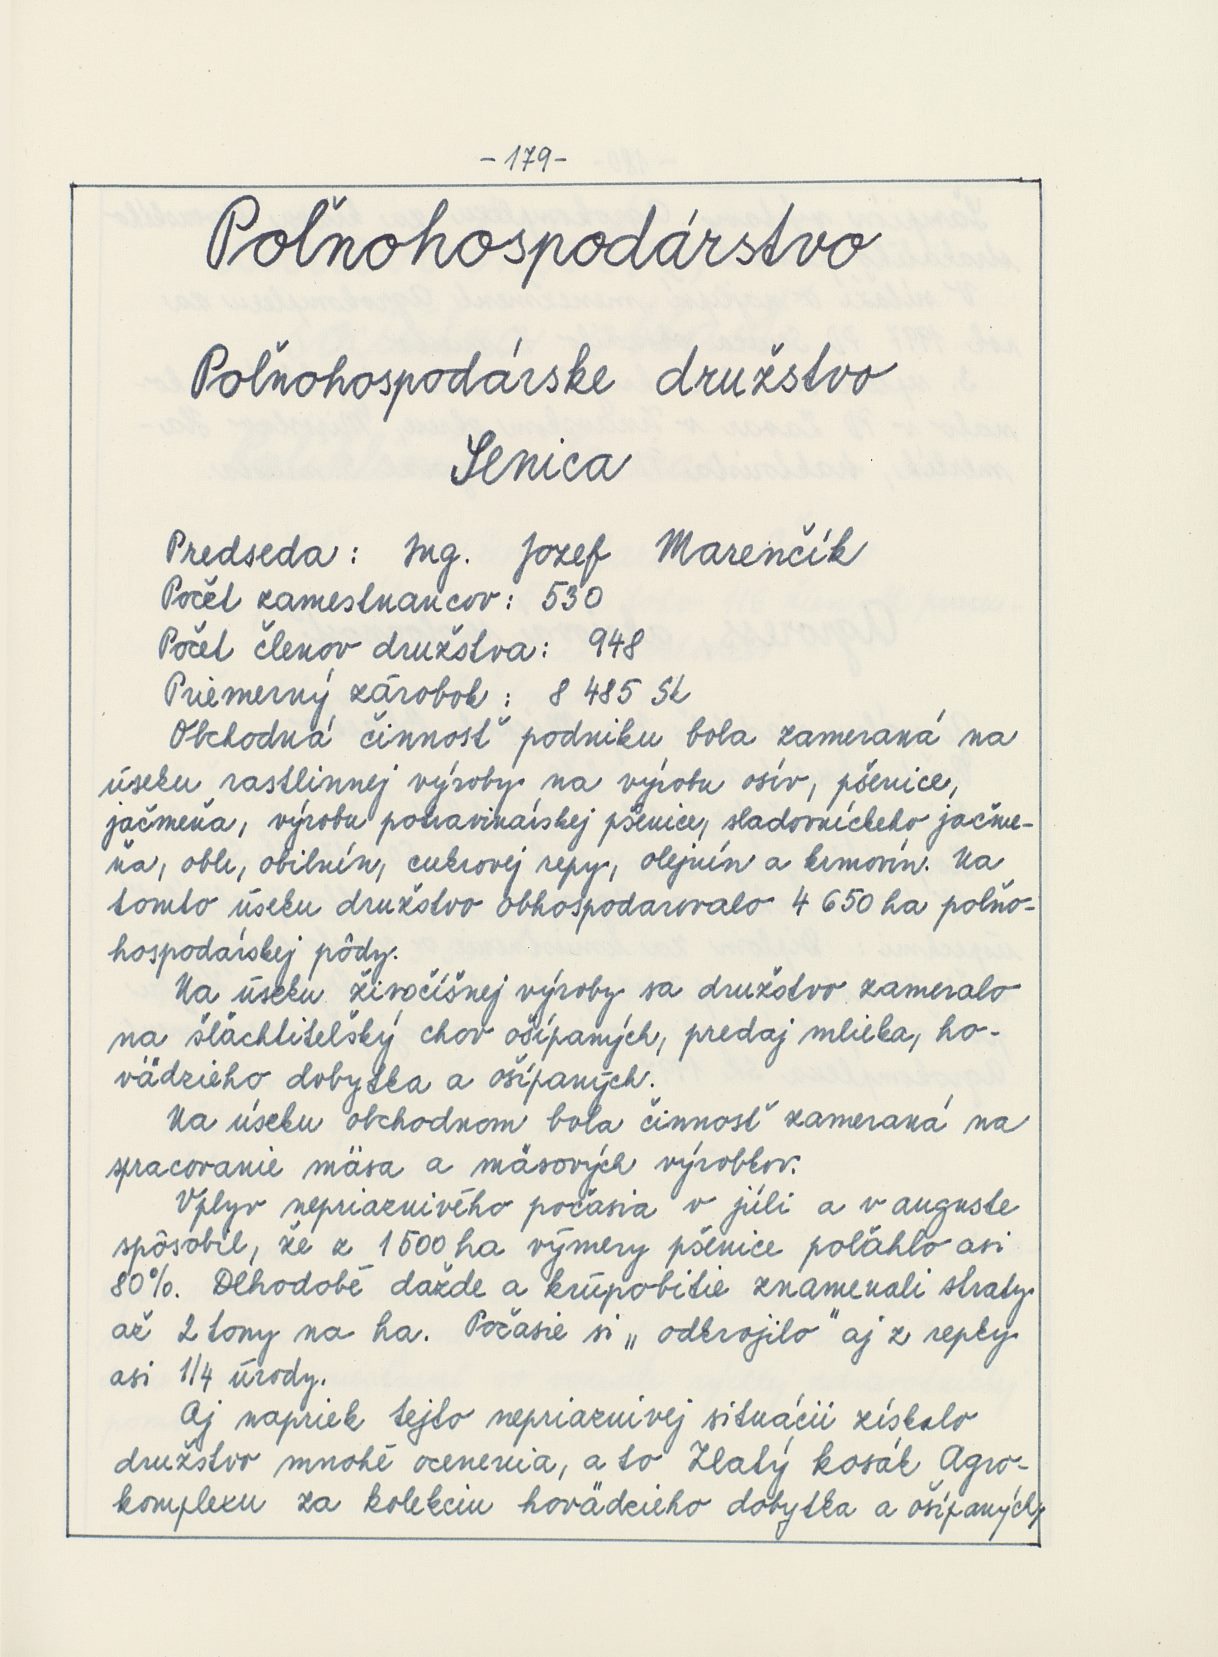 - 179 -
Poľnohospodárstvo
Poľnohospodárske družstvo
Senica
Predseda : Ing. Jozef Marenčík
Počet zamestnancov : 530
Počet členov družstva : 948
Priemerný zárobok : 8 485 Sk
Obchodná činnosť podniku bola zameraná na
úseku rastlinnej výroby na výrobu osív, pšenice,
jačmeňa, výrobu potravinárskej pšenice, sladovníckeho jačme-
ňa, obilnín, cukrovej repy, olejnín a krmovín. Na
tomto úseku družstvo obhospodarovalo 4 650 ha poľno-
hospodárskej pôdy.
Na úseku živočíšnej výroby sa družstvo zameralo
na šľachtiteľský chov ošípaných, predaj mlieka, ho-
vädzieho dobytka a ošípaných.
Na úseku obchodnom bola činnosť zameraná na
spracovanie mäsa a mäsových výrobkov.
Vplyv nepriaznivého počasia v júli a v auguste
spôsobil, že z 1 500 ha výmery pšenice poľahlo asi
80%. Dlhodobé dažde a krúpobitie znamenali straty
až 2 tony na ha. Počasie si „ odkrojilo " aj z repky
asi 1/4 úrody.
Aj napriek tejto nepriaznivej situácii získalo
družstvo mnohé ocenenia, a to Zlatý kosák Agro-
komplexu za kolekciu hovädzieho dobytka a ošípaných,